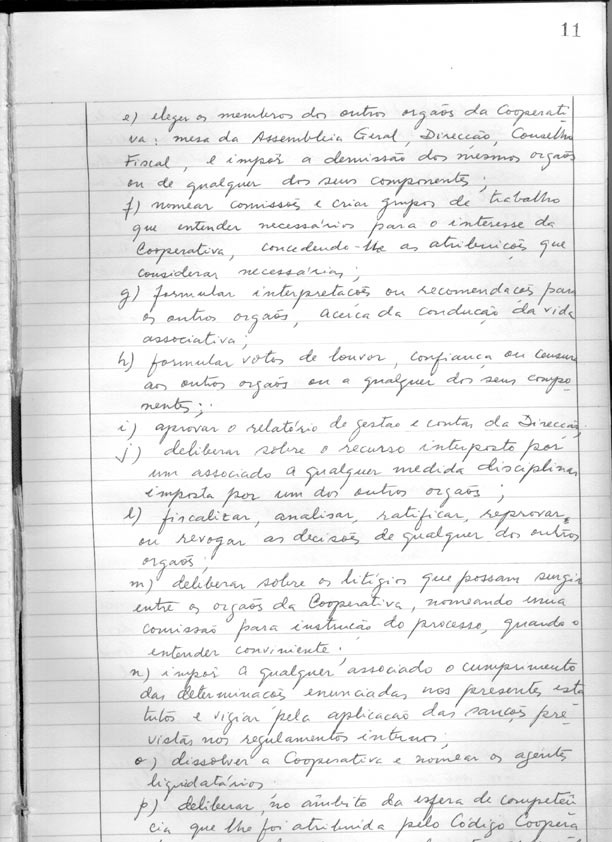 11
e) eleger os membros dos outros orgaõs da Cooperati-
va: mesa da Assembleia Geral, Direcção, Conselho
Fiscal, e impôr a demissão dos mesmos orgaõs
ou de qualquer dos seus componentes;
f) nomear comissões e criar grupos de trabalho
que entender necessários para o interesse da
Cooperativa, concedendo-lhe as atribuições que
considerar necessárias;
g) formular interpretações ou recomendações para
os outros orgaõs, acerca da condução da vida
associativa;
h) formular votos de louvor, confiança ou censura
aos outros orgaõs ou a qualquer dos seus compo-
nentes;
i) aprovar o relatório de gestão e contas da Direcção;
j) deliberar sobre o recurso interposto por
um associado a qualquer medida disciplinar
imposta por um dos outros orgaõs;
l) fiscalizar, analisar, ratificar, reprovar,
ou revogar as decisões de qualquer dos outros
orgaõs;
m) deliberar sobre os litígios que possam surgir
entre os orgaõs da Cooperativa, nomeando uma
comissão para instrução do processo, quando o
entender conviniente;
n) impôr a qualquer associado o cumprimento
das determinacões enunciadas nos presentes esta
tutos e vigiar pela aplicacão das sancões pre-
vistas nos regulamentos internos;
o) dissolver a Cooperativa e nomear os agentes
liquidatários.
p) deliberar, no âmbito da esfera de competên-
cia que lhe foi atribuida pelo Código Coopera